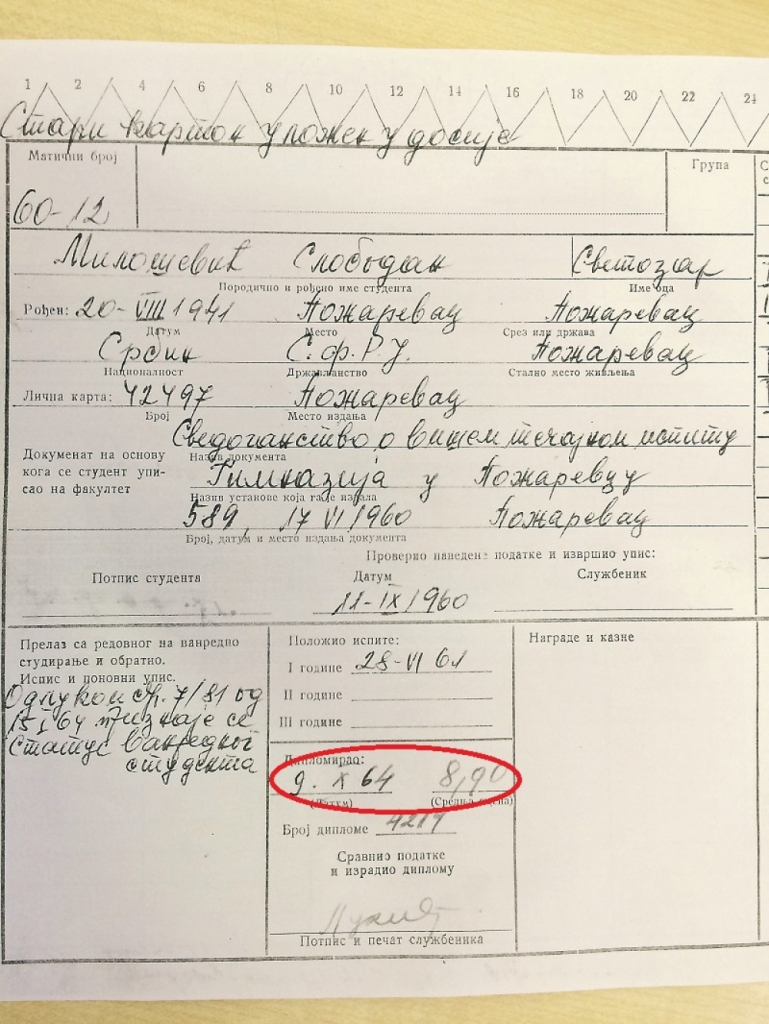 1 2 4 6 8 10 12 14 16 18 20 22 24
Стари картон уложен у досије
Матични број
Група
60-12
Милошевић Слободан Светозар
Породично и рођено име студента Име оца
Рођен: 20-VIII 1941 Пожаревац Пожаревац
Датум Место Срез или држава
Србин С.ф.Р.Ј. Пожаревац
Националност Држављанство Стално место живљења
Лична карта: 42497 Пожаревац
Број Место издања
Сведочанство о вишем течајном испиту
Документ на основу кога се студент упи-сао на факултет
Назив документа
Гимназија у Пожаревцу
Назив установе која га је издала
589, 17 VI 1960 Пожаревац
Број, датум и место издања документа
Проверио наведене податке и извршио упис:
Потпис студента Датум Службеник
11-IX 1960
Прелаз са редовног на ванредно
студирање и обратно.
Испис и поновни упис.
Одлуком бр. 7/81 од
15 I 64 признаје се
статус ванредног
студента
Положио испите:
I године 28-VI 61
II године
III године
Дипломирао:
9. X 64 8,90
(Датум) (Средња оцена)
Број дипломе 4217
Сравнио податке
и израдио диплому
Потпис и печат службеника
Награде и казне